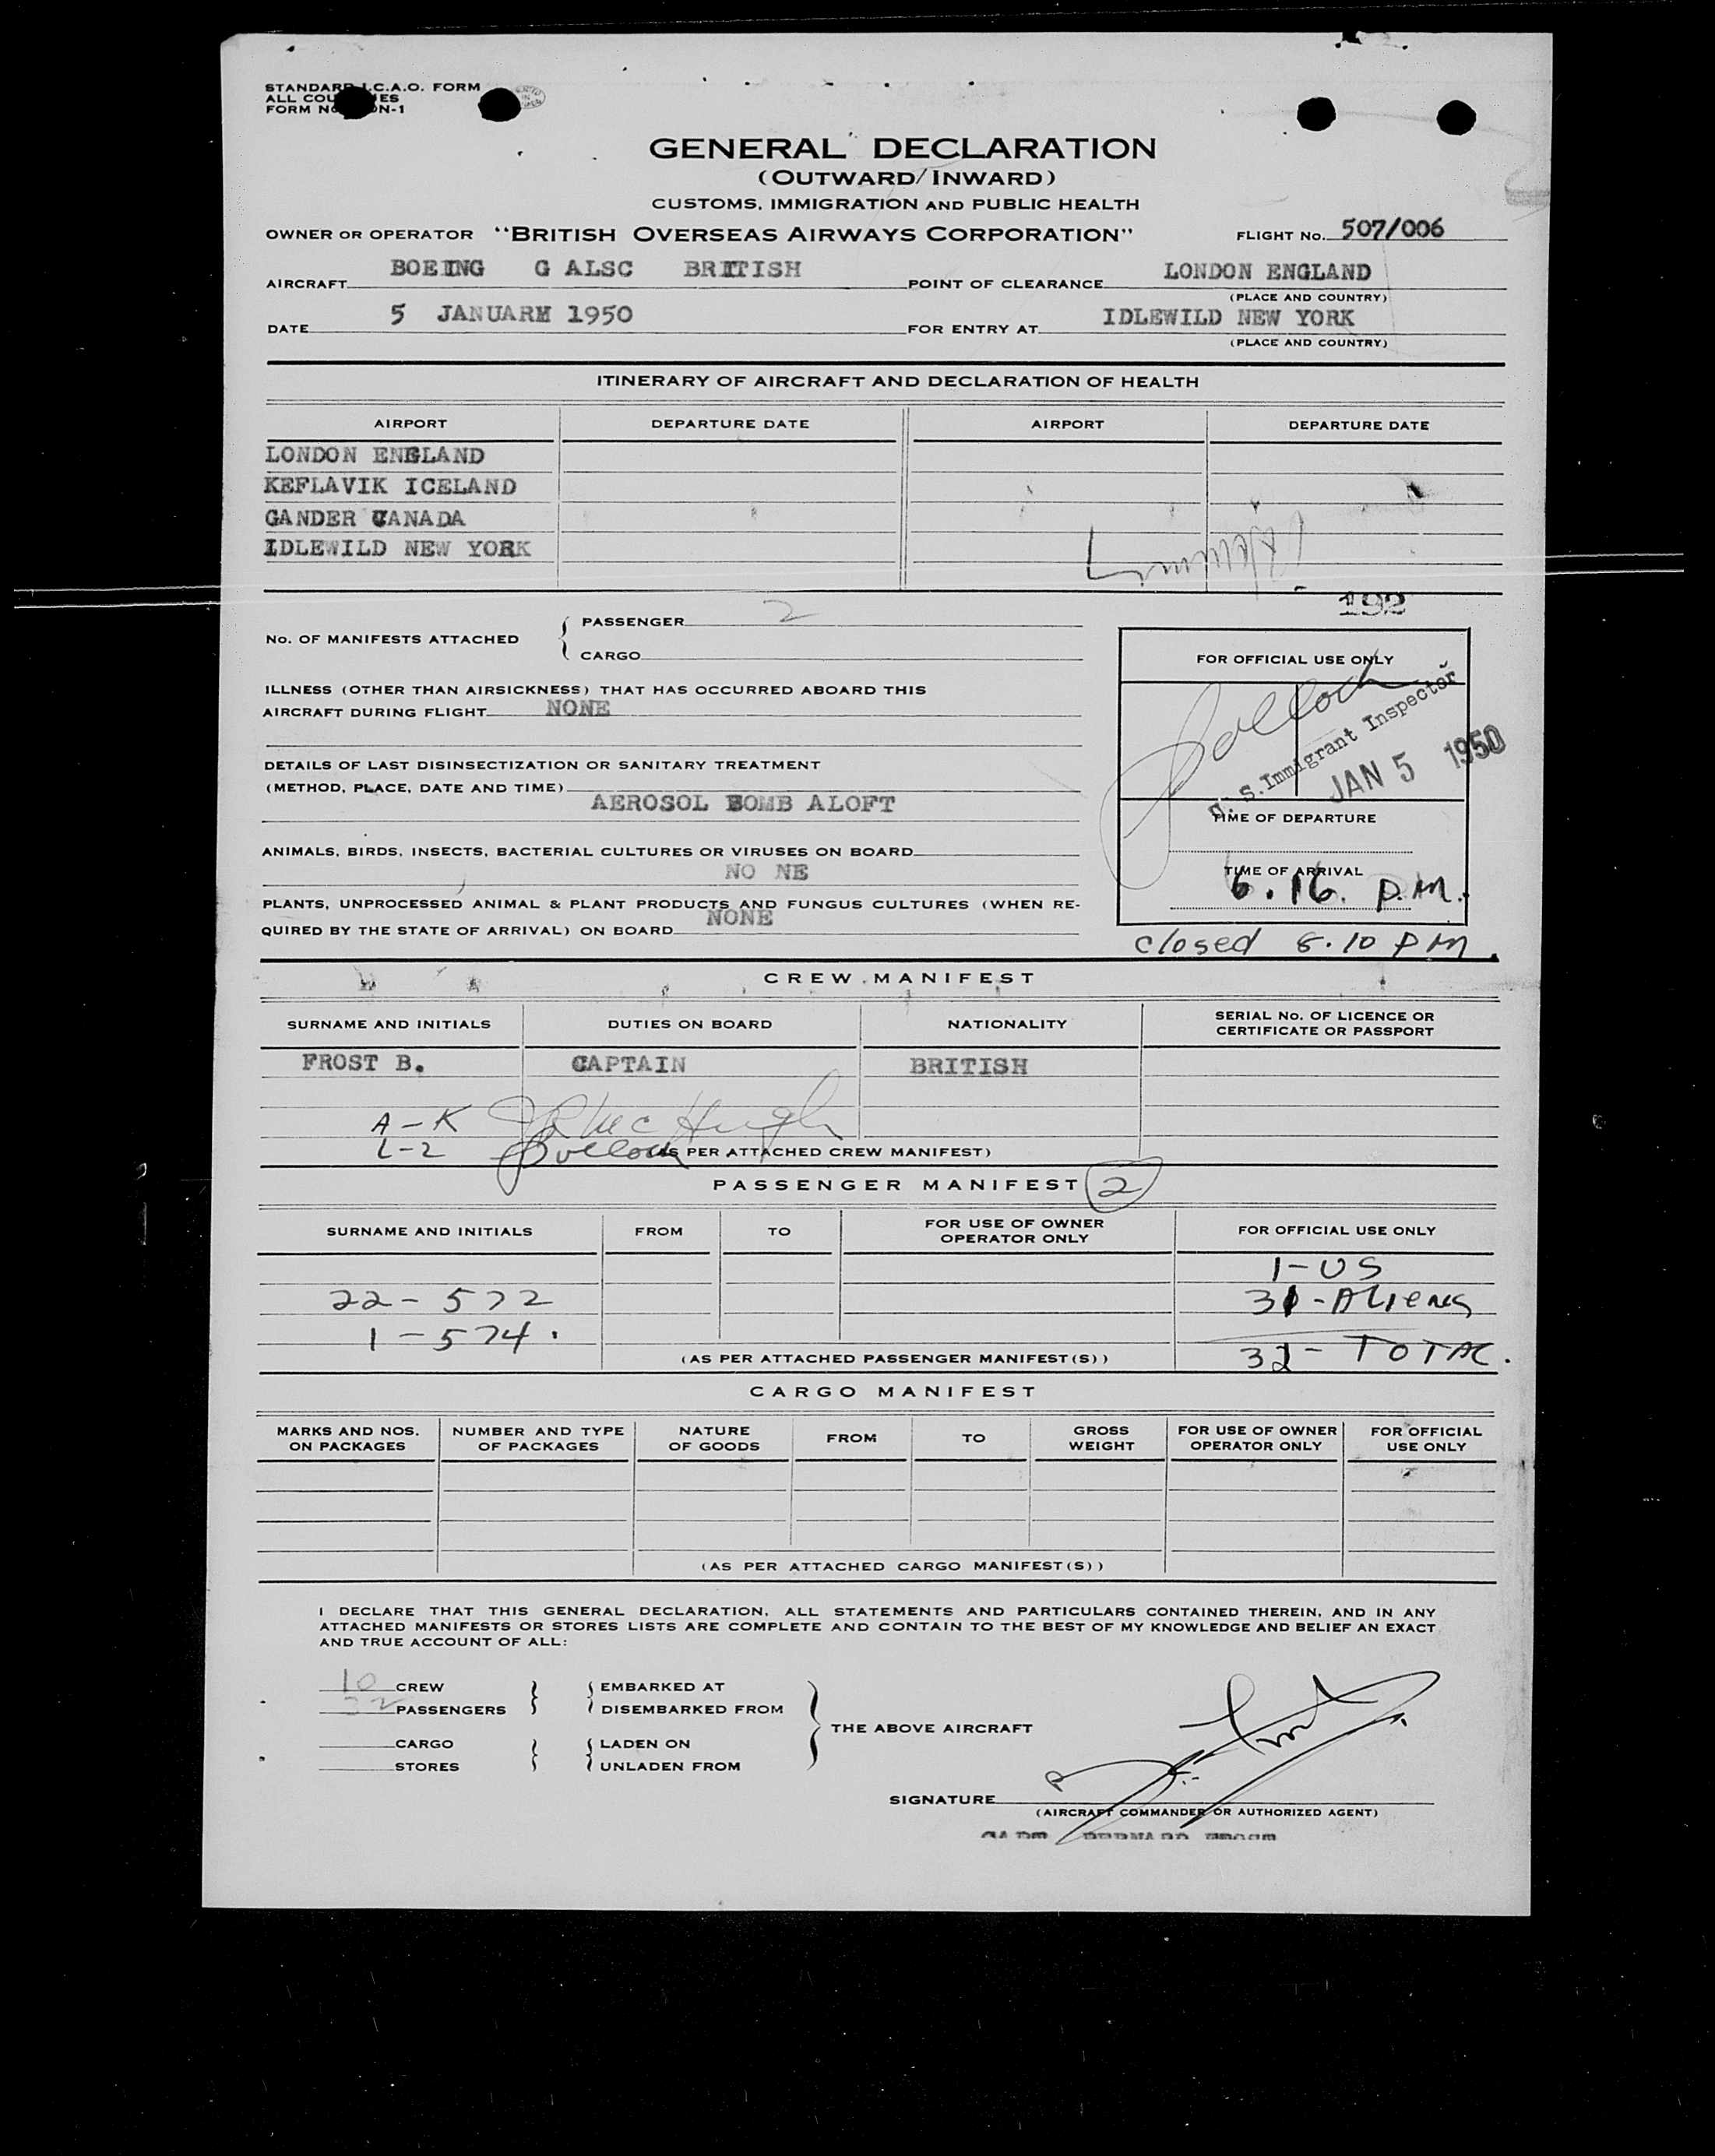 STANDARD I.C.A.O. FORM
ALL COU IES
FORM N ON-1
GENERAL DECLARATION
(OUTWARD/INWARD)
CUSTOMS, IMMIGRATION AND PUBLIC HEALTH
OWNER OR OPERATOR "BRITISH OVERSEAS AIRWAYS CORPORATION" FLIGHT No. 507/006
AIRCRAFT BOEING G ALSC BRITISH POINT OF CLEARANCE LONDON ENGLAND
(PLACE AND COUNTRY)
DATE 5 JANUARY 1950 FOR ENTRY AT IDLEWILD NEW YORK
(PLACE AND COUNTRY)
ITINERARY OF AIRCRAFT AND DECLARATION OF HEALTH
AIRPORT DEPARTURE DATE AIRPORT DEPARTURE DATE
LONDON ENGLAND
KEFLAVIK ICELAND
GANDER CANADA
IDLEWILD NEW YORK
192
No. OF MANIFESTS ATTACHED
PASSENGER 2
CARGO
FOR OFFICIAL USE ONLY
ILLNESS (OTHER THAN AIRSICKNESS) THAT HAS OCCURRED ABOARD THIS
AIRCRAFT DURING FLIGHT NONE
DETAILS OF LAST DISINSECTIZATION OR SANITARY TREATMENT
(METHOD, PLACE, DATE AND TIME)
AEROSOL BOMB ALOFT
U. S. Immigrant Inspector
JAN 5 1950
TIME OF DEPARTURE
ANIMALS, BIRDS, INSECTS, BACTERIAL CULTURES OR VIRUSES ON BOARD
NO NE
TIME OF ARRIVAL
6.16. P.M.
PLANTS, UNPROCESSED ANIMAL & PLANT PRODUCTS AND FUNGUS CULTURES (WHEN RE-
QUIRED BY THE STATE OF ARRIVAL) ON BOARD NONE
closed 8.10 PM.
CREW MANIFEST
SURNAME AND INITIALS DUTIES ON BOARD NATIONALITY SERIAL No. OF LICENCE OR
CERTIFICATE OR PASSPORT
FROST B. CAPTAIN BRITISH
A-K McHugh
L-Z
(AS PER ATTACHED CREW MANIFEST)
PASSENGER MANIFEST 2
SURNAME AND INITIALS FROM TO FOR USE OF OWNER
OPERATOR ONLY FOR OFFICIAL USE ONLY
1-US
22-572 31-Aliens
1-574.
(AS PER ATTACHED PASSENGER MANIFEST(S)) 32-TOTAL.
CARGO MANIFEST
MARKS AND NOS.
ON PACKAGES NUMBER AND TYPE
OF PACKAGES NATURE
OF GOODS FROM TO GROSS
WEIGHT FOR USE OF OWNER
OPERATOR ONLY FOR OFFICIAL
USE ONLY
(AS PER ATTACHED CARGO MANIFEST(S))
I DECLARE THAT THIS GENERAL DECLARATION, ALL STATEMENTS AND PARTICULARS CONTAINED THEREIN, AND IN ANY
ATTACHED MANIFESTS OR STORES LISTS ARE COMPLETE AND CONTAIN TO THE BEST OF MY KNOWLEDGE AND BELIEF AN EXACT
AND TRUE ACCOUNT OF ALL:
10 CREW EMBARKED AT
32 PASSENGERS DISEMBARKED FROM
THE ABOVE AIRCRAFT
CARGO LADEN ON
STORES UNLADEN FROM
SIGNATURE
(AIRCRAFT COMMANDER OR AUTHORIZED AGENT)
CAPT BERNARD FROST